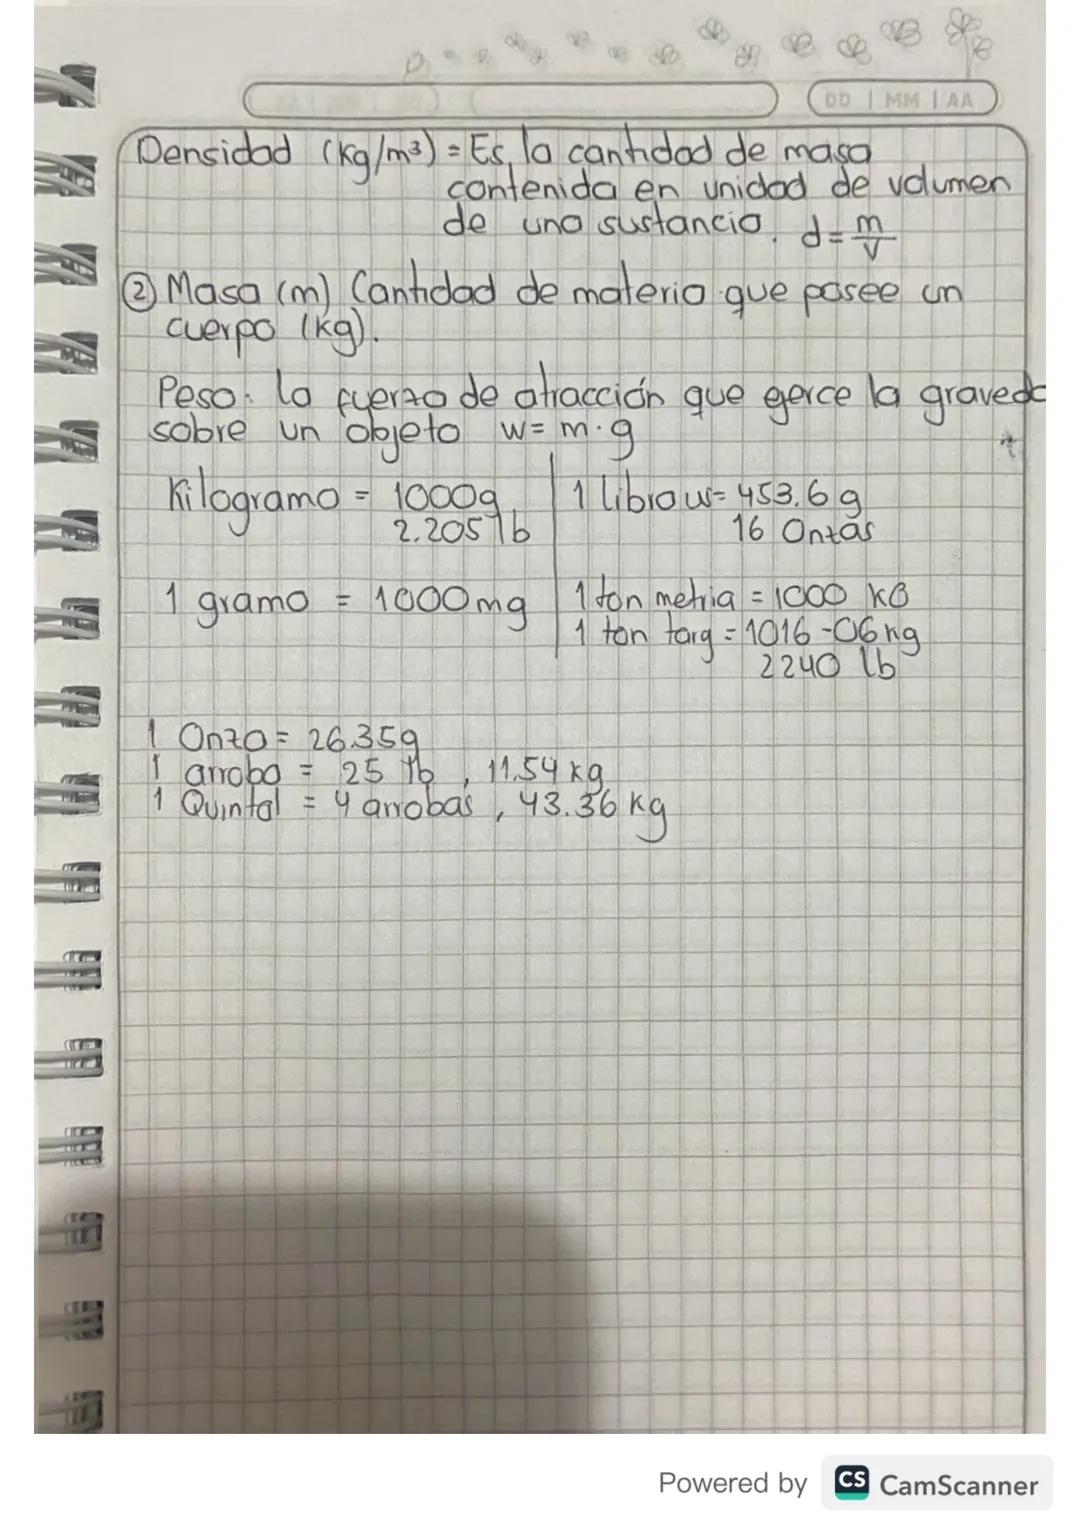 DD | MM | AA
Densidad (kg/m³) = Es la cantidad de masa
contenida en unidad de volumen
de una sustancia. d = m/v
② Masa (m) Cantidad de materia que posee un
cuerpo (kg).
Peso: la fuerza de atracción que gerce la graveda
sobre un objeto w = m·g
Kilogramo = 1000g
2.205 lb
1 gramo = 1000mg
1 libra = 453.6 g
16 Onzas
1 ton metria = 1000 KG
1 ton larg = 1016-06 kg
2240 lb
1 Onza = 26.35g
1 arroba = 25 lb, 11.54 kg
1 Quintal = 4 arrobas, 43.36 kg
Powered by CS CamScanner